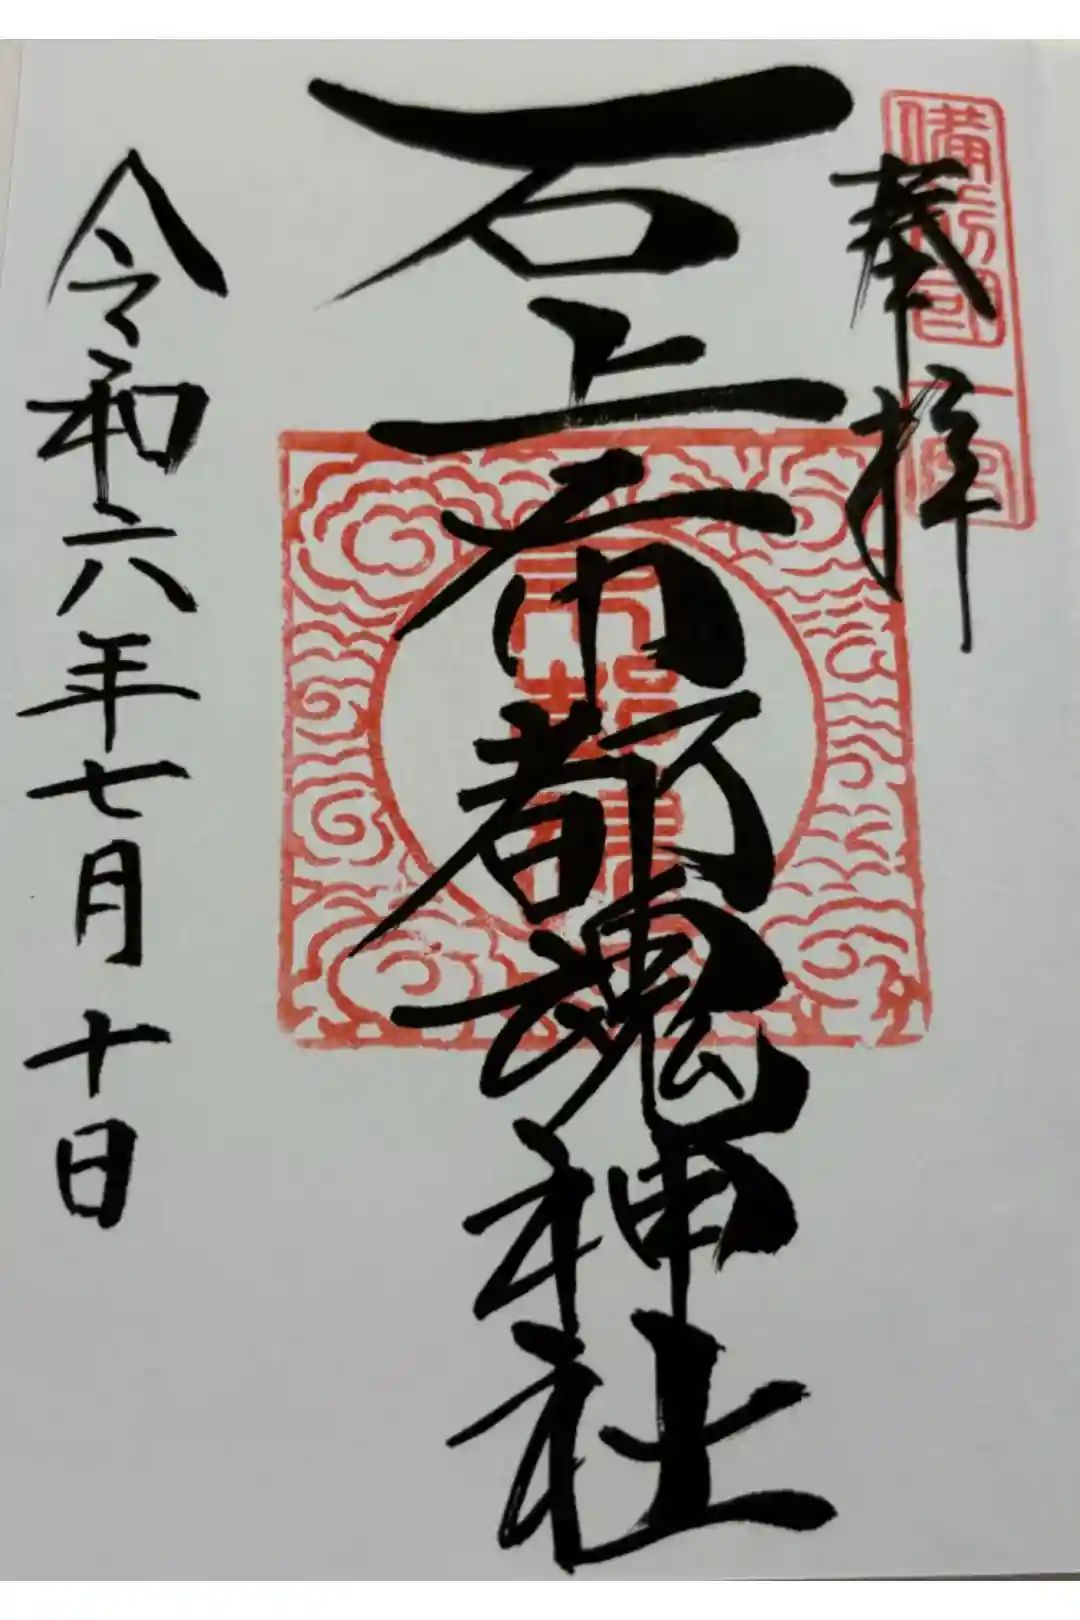 奉拝
備前國一宮
石上布都魂神社
令和六年七月十日